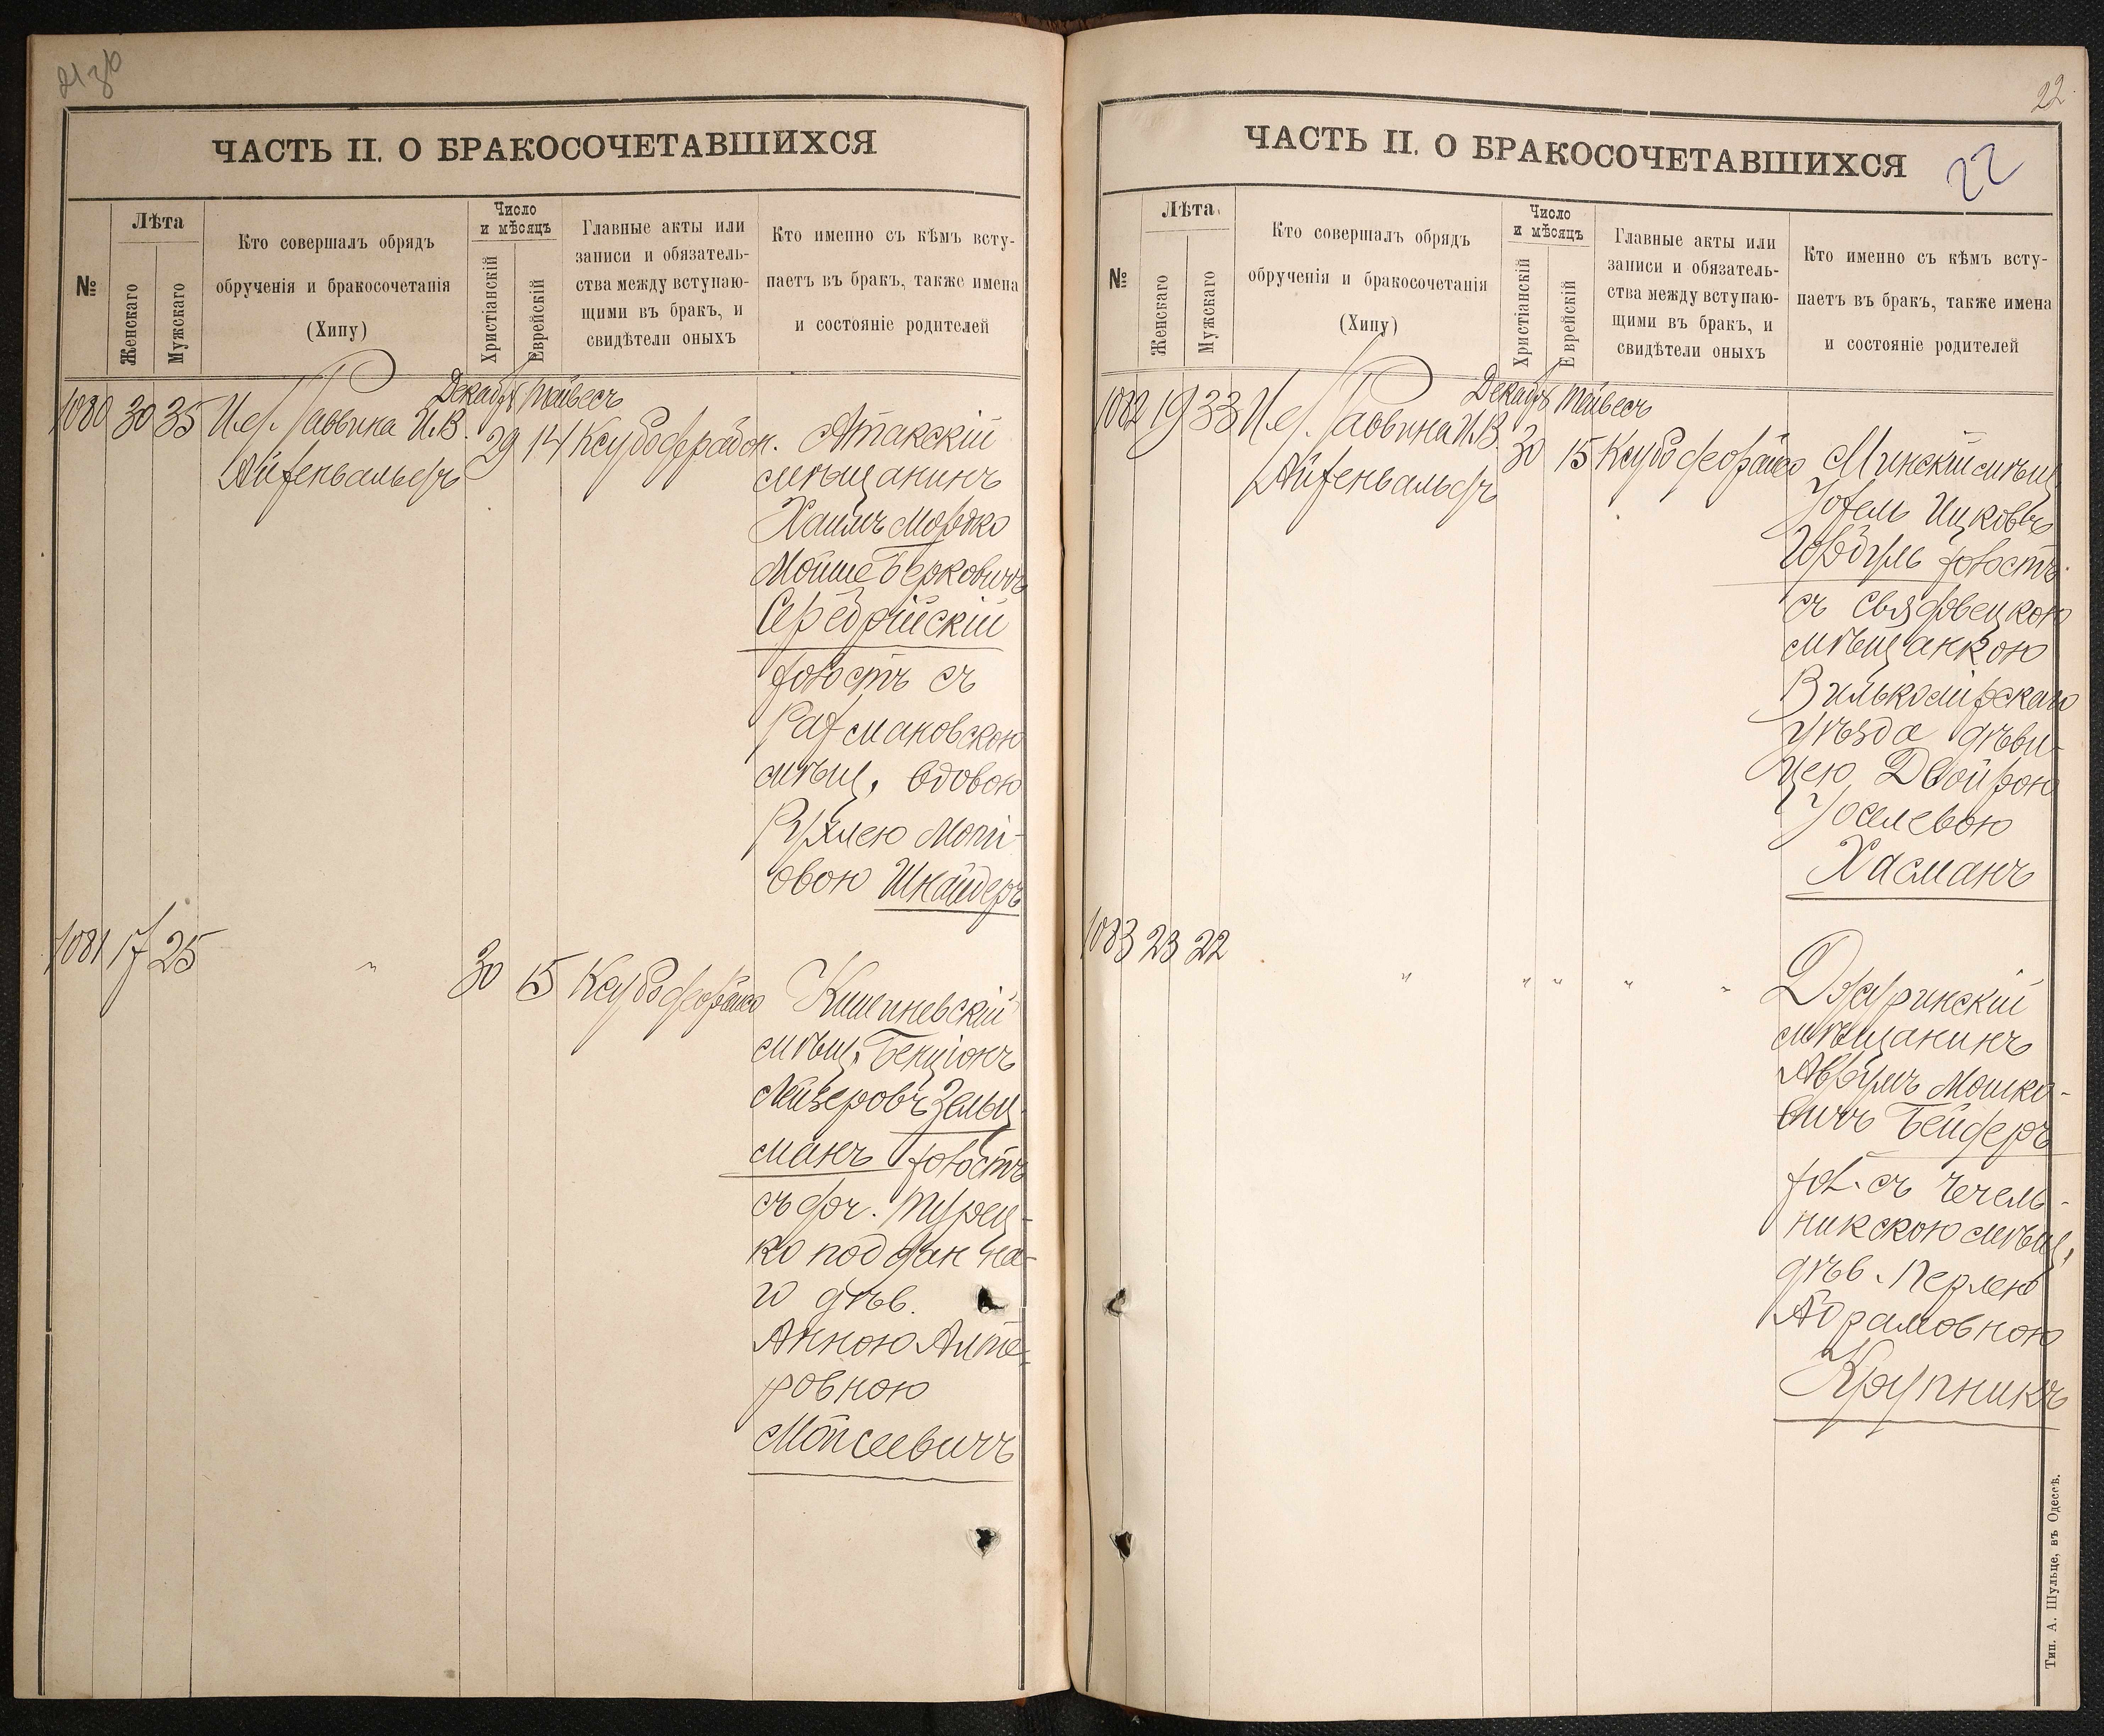 22
ЧАСТЬ II. О БРАКОСОЧЕТАВШИХСЯ
№
Лѣта
Женскаго
Мужскаго
Кто совершалъ обрядъ
обрученія и бракосочетанія
(Хипу)
Число
и мѣсяцъ
Христіанскій
Еврейскій
Главные акты или
записи и обязатель-
ства между вступаю-
щими въ бракъ, и
свидѣтели оныхъ
Кто именно съ кѣмъ всту-
паетъ въ бракъ, также имена
и состояніе родителей
1080 30 35 И. д. Раввина И. В.
Айзенвальдъ
Декабр Тайвесъ
29 14
Атакскій
мѣщанинъ
Хаимъ Мордко
Мойше Берковичъ
Серебрійскій
холостъ съ
Рахмановскою
мѣщ. вдовою
Рухлею Мот-
овою Шнайдеръ
1081 17 25 " 30 15
Кишиневскій
мѣщ. Бенціонъ
Лейзеровъ Зельц-
манъ холостъ
съ доч. Турец-
ко поддан на-
го дѣв.
Анною Алте-
ровною
Моисеевичъ
22
ЧАСТЬ II. О БРАКОСОЧЕТАВШИХСЯ
№
Лѣта
Женскаго
Мужскаго
Кто совершалъ обрядъ
обрученія и бракосочетанія
(Хипу)
Число
и мѣсяцъ
Христіанскій
Еврейскій
Главные акты или
записи и обязатель-
ства между вступаю-
щими въ бракъ, и
свидѣтели оныхъ
Кто именно съ кѣмъ всту-
паетъ въ бракъ, также имена
и состояніе родителей
1082 19 33 И. д. Раввина И. В.
Айзенвальдъ
Декабр Тайвесъ
30 15
Минскій мѣщ.
Ицковъ
холостъ
съ
мѣщанкою
Вилькомирскаго
уѣзда дѣви-
цею Двойрою
Іоселевою
Хасманъ
1083 23 22 " " " " "
Джуринскій
мѣщанинъ
Аврумъ Мошко-
вичъ Бейдеръ
хол. съ Чечель-
никскою мѣщ.
дѣв. Перлею
Абрамовною
Крупникъ
Тип. А. Шульце, въ Одессѣ.